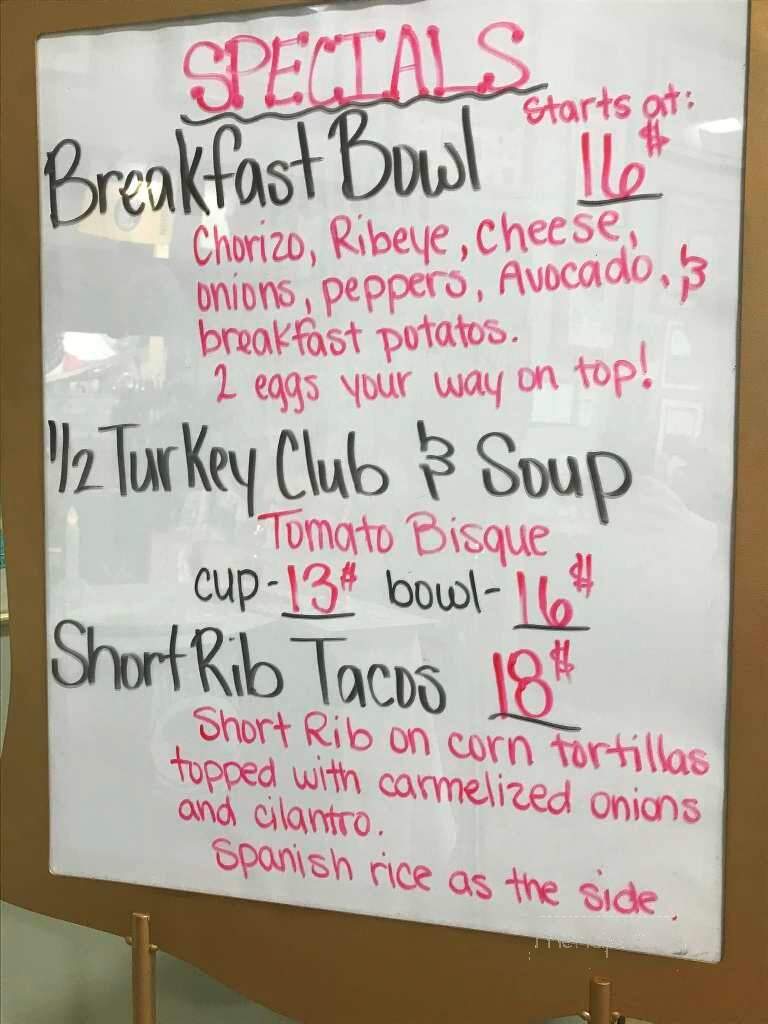 SPECIALS
Starts at:
Breakfast Bowl 16$
Chorizo, Ribeye, Cheese,
onions, peppers, Avocado, &
breakfast potatos.
2 eggs your way on top!
1/2 Turkey Club & Soup
Tomato Bisque
cup - 13$ bowl - 16$
Short Rib Tacos 18$
Short Rib on corn tortillas
topped with carmelized onions
and cilantro.
Spanish rice as the side.